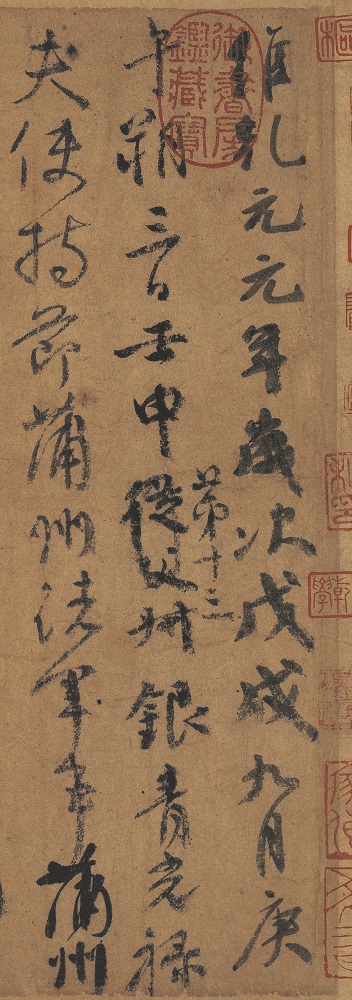 維乾元元年歲次戊戌九月庚
第十三
午朔三日壬申從父叔銀青光祿
夫使持節蒲州諸軍事蒲州
御書房鑑藏寶